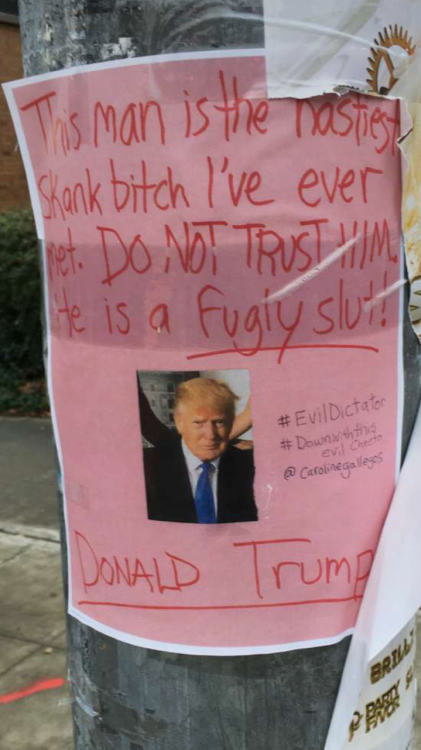 This man is the nastiest
skank bitch I've ever
met. DO NOT TRUST HIM.
He is a fugly slut!
# EvilDictator
# Downwiththis
evil Cheeto
@ Carolinegallegos
DONALD Trump
BRILL
PARTY
FAVOR